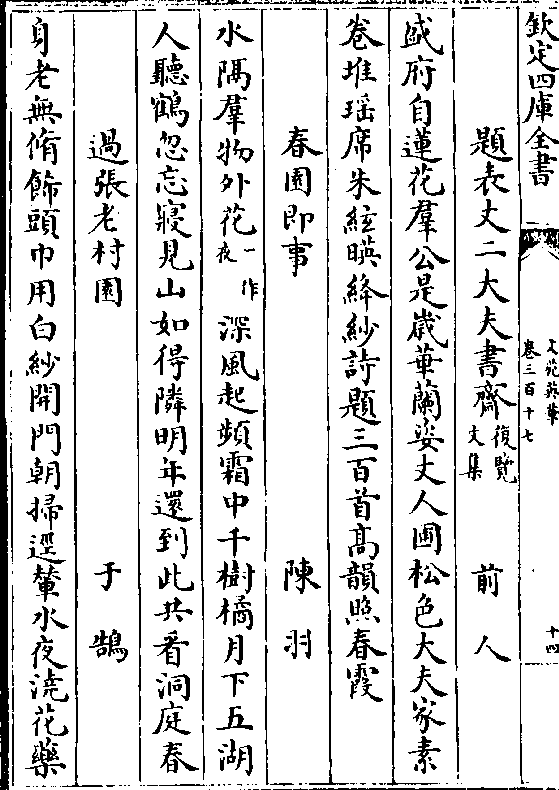 欽定四庫全書
文苑英華
卷三百十七
十四
題表丈二大夫書齋復覽文集 前人
盛府自蓮花羣公是歲華蘭姿丈人圃松色大夫家素
卷堆瑤席朱絃暎絳紗詩題三百首高韻照春霞
春園即事 陳羽
水隅羣物外花一作夜深風起頻霜中千樹橘月下五湖
人聽鶴忽忘寢見山如得隣明年還到此共看洞庭春
過張老村園 于鵠
身老無脩飾頭巾用白紗開門朝掃逕輦水夜澆花藥